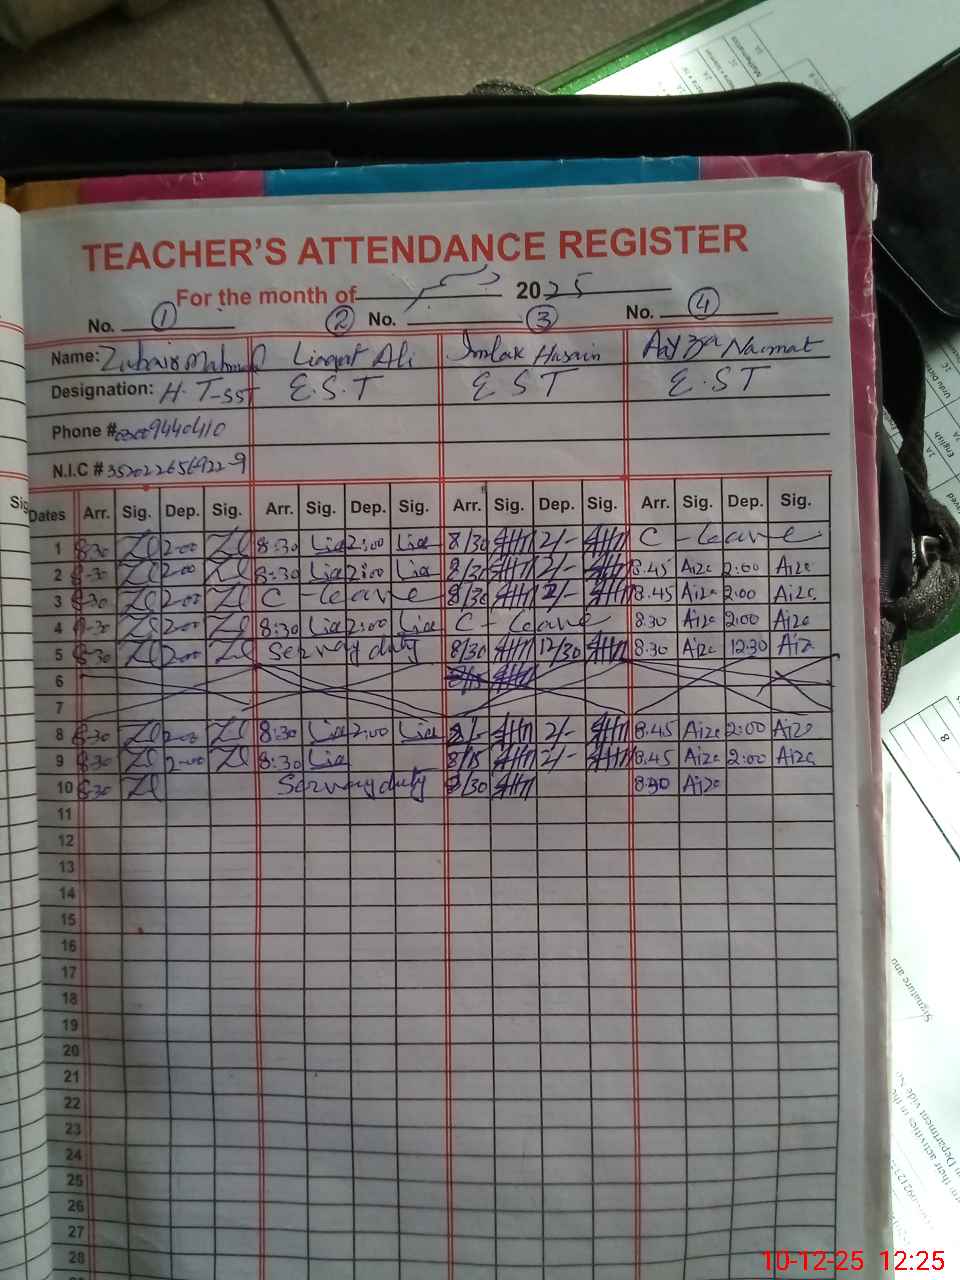 TEACHER'S ATTENDANCE REGISTER
For the month of 2025
No. 1 2 No. 3 No. 4
Name: Zubair Mahmood Liaqat Ali Imlak Husain Aiyza Naimat
Designation: H.T-SST E.S.T EST E.ST
Phone # 03009440410
N.I.C #
Dates Arr. Sig. Dep. Sig. Arr. Sig. Dep. Sig. Arr. Sig. Dep. Sig. Arr. Sig. Dep. Sig.
1 8-30 2-00 8:30 Lia 2:00 Lia 8/30 2/- C-leave
2 8-30 2-00 8:30 Lia 2:00 Lia 8/30 2/- 8.45 Aize 2:00 Aize
3 8-30 2-00 C-leave 8/30 2/- 8.45 Aize 2:00 Aize
4 8-30 2-00 8:30 Lia 2:00 Lia C-leave 8.30 Aize 2:00 Aize
5 8-30 2-00 Servay duty 8/30 12/30 8.30 Aize 12.30 Aize
6
7
8 8-30 2-00 8:30 Lia 2:00 Lia 8/- 2/- 8.45 Aize 2:00 Aize
9 8-30 2-00 8:30 Lia 8/15 2/- 8.45 Aize 2:00 Aize
10 8-30 Servay duty 8/30 8.30 Aize
11
12
13
14
15
16
17
18
19
20
21
22
23
24
25
26
27
28
Mathematics
English
Urdu
Signature and
their activities in the
Department vide No
8
10-12-25 12:25